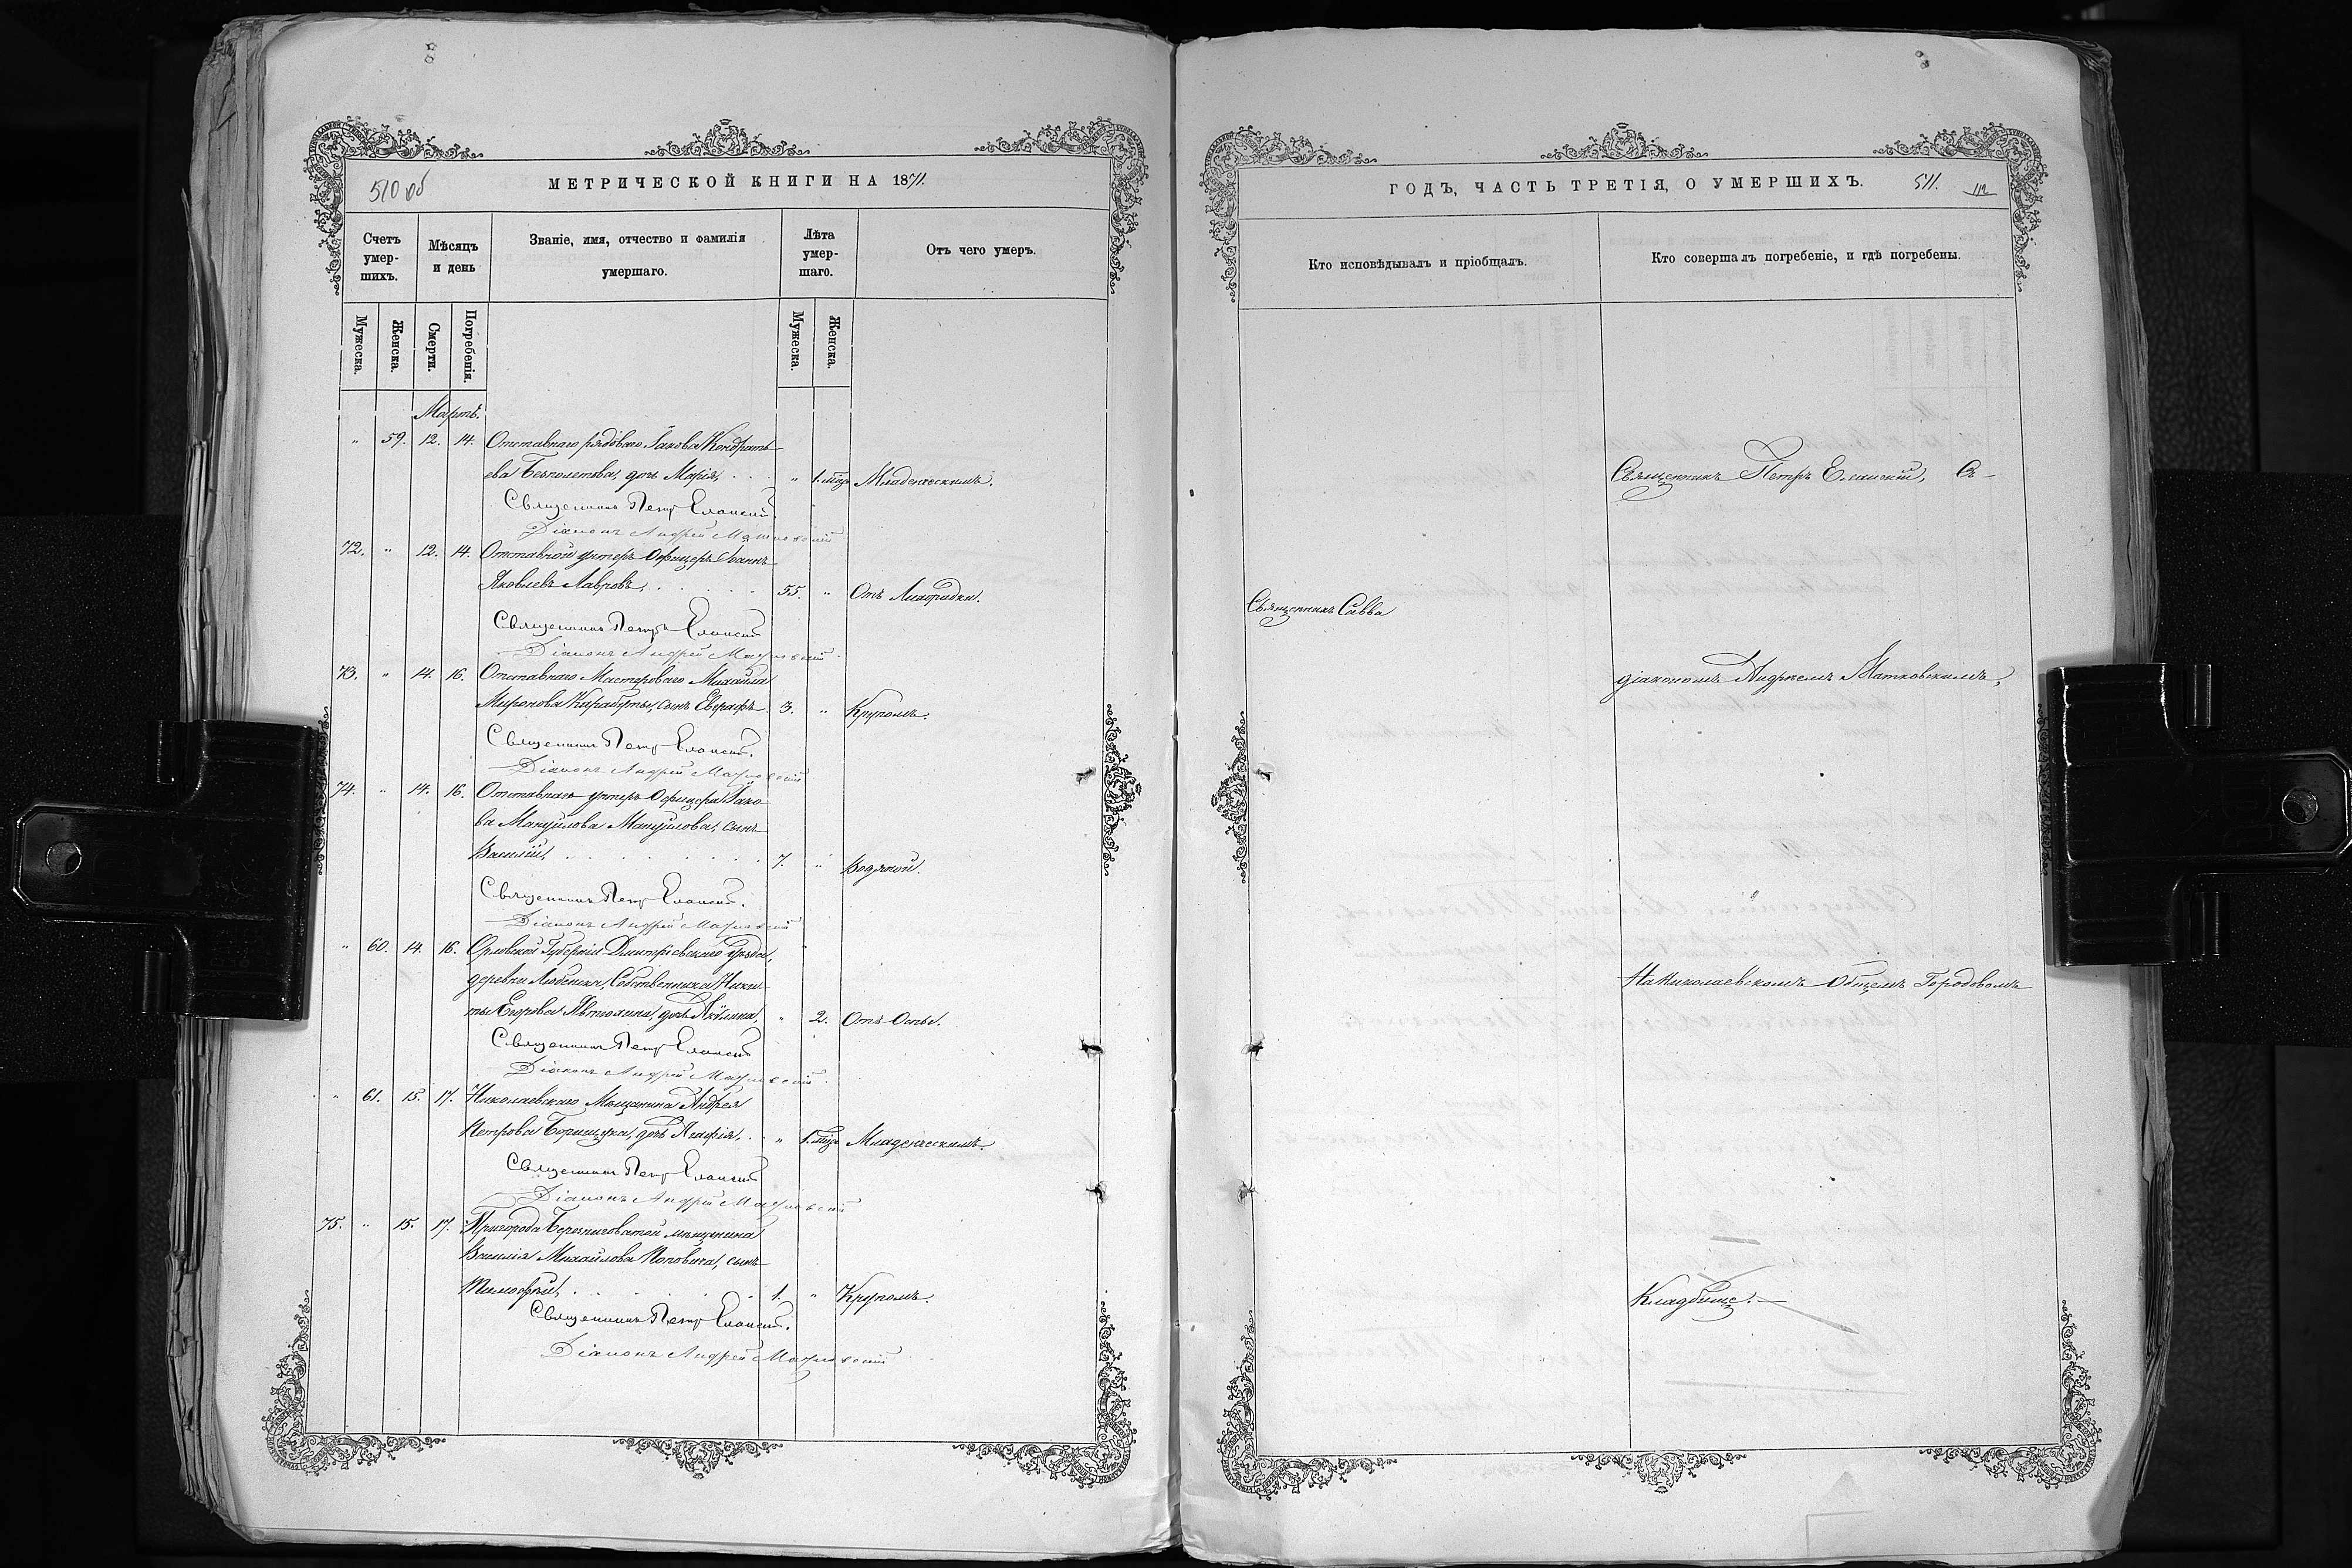 510 об
МЕТРИЧЕСКОЙ КНИГИ НА 1871.
Счетъ умер- шихъ.
Мѣсяцъ и день
Званіе, имя, отчество и фамилія умершаго.
Лѣта умер- шаго.
Отъ чего умеръ.
Мужеска. Женска. Смерти. Погребенія. Мужеска. Женска.
Мартъ.
" 59. 12. 14. Отставнаго рядоваго Іакова Кондрать-
ева Безполетова, дочь Марія, . . . " 1. мѣс. Младенческимъ.
Священникъ Петръ Еланскій.
Діаконъ Андрей Матковскій
72. " 12. 14. Отставной унтеръ Офицеръ Іоаннъ
Яковлевъ Лавровъ, . . . . . 55. " Отъ Лихорадки.
Священникъ Петръ Еланскій
Діаконъ Андрей Матковскій
73. " 14. 16. Отставнаго Мастероваго Михаила
Миронова Карабуты, сынъ Евграфъ. 3. " Крупомъ.
Священникъ Петръ Еланскій.
Діаконъ Андрей Матковскій
74. " 14. 16. Отставнаго унтеръ Офицера Іако-
ва Мануйлова Мануйлова, сынъ
Василій, . . . . . . . 7. " Водяной.
Священникъ Петръ Еланскій.
Діаконъ Андрей Матковскій
" 60. 14. 16. Орловской Губерніи Дмитріевскаго уѣзда,
деревни Собственника Ники-
ты Егорова дочь Акулина, " 2. Отъ Оспы.
Священникъ Петръ Еланскій
Діаконъ Андрей Матковскій
" 61. 15. 17. Николаевскаго Мѣщанина Андрея
Петрова Борищука, дочь Агафія, . . " 1. мѣс. Младенческимъ.
Священникъ Петръ Еланскій
Діаконъ Андрей Матковскій
75. " 15. 17. Пригорода Березниговатой мѣщанина
Василія Михайлова Поповича, сынъ
Тимофей, . . . . . . 1. " Крупомъ.
Священникъ Петръ Еланскій.
Діаконъ Андрей Матковскій
ГОДЪ, ЧАСТЬ ТРЕТІЯ, О УМЕРШИХЪ. 511. 112
Кто исповѣдывалъ и пріобщалъ.
Кто совершалъ погребеніе, и гдѣ погребены.
Священникъ Петръ Еланскій, Съ-
Священникъ Савва
діакономъ Андреемъ Матковскимъ,
На Николаевскомъ Общемъ Городовомъ
Кладбище.—